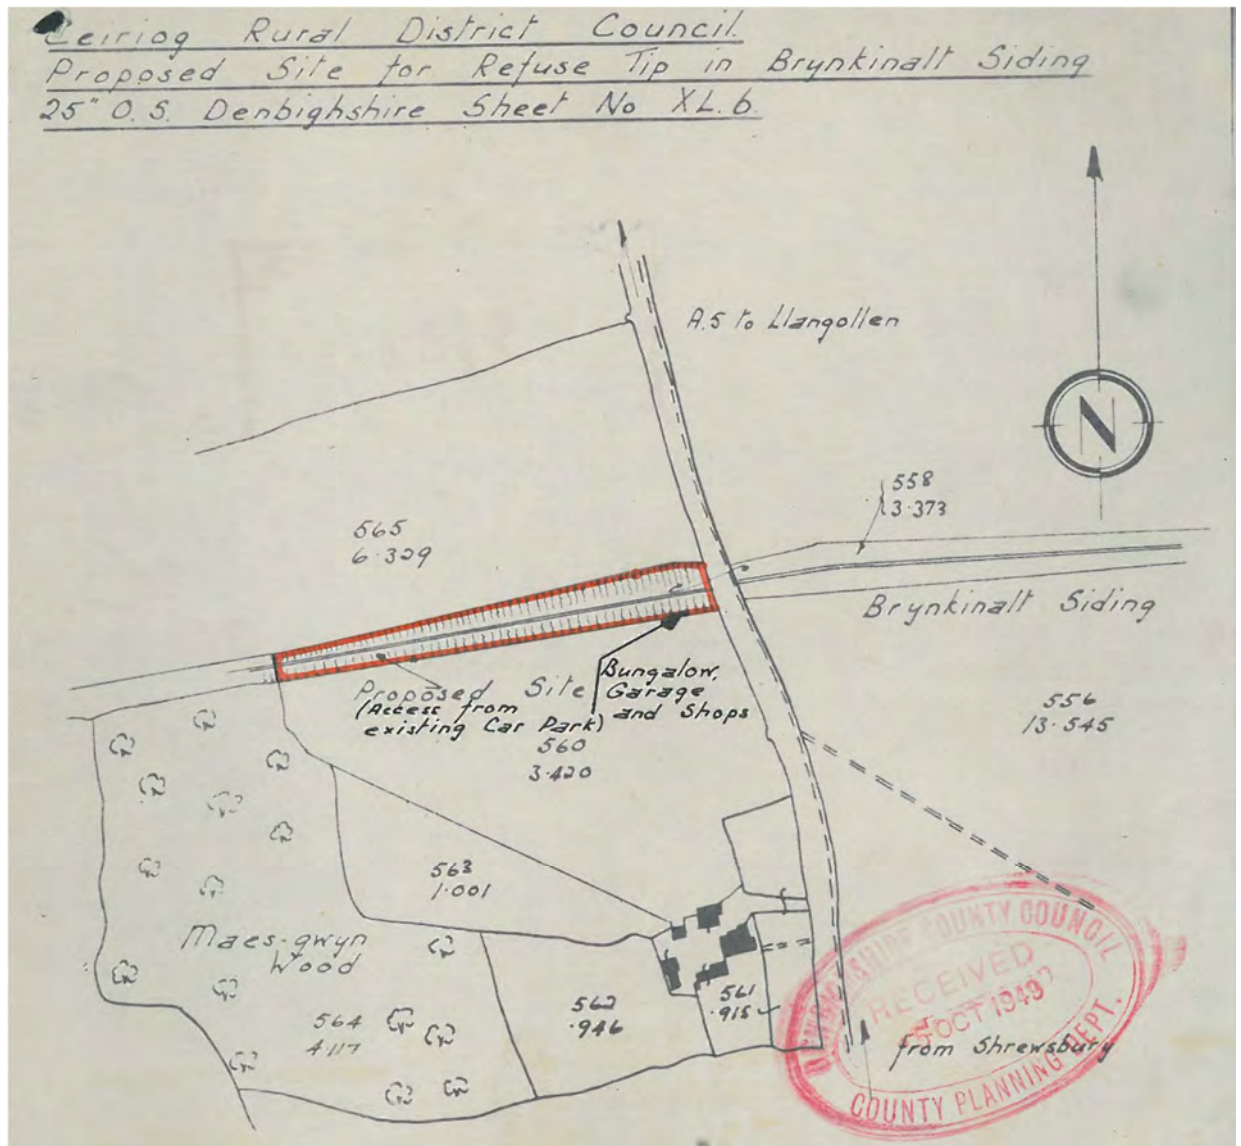 Ceiriog Rural District Council.
Proposed Site for Refuse Tip in Brynkinalt Siding
25" O.S. Denbighshire Sheet No XL.6.
A.5 to Llangollen
N
558
3.373
565
6.329
Brynkinalt Siding
Proposed Site
(Access from
existing Car Park)
Bungalow,
Garage
and Shops
560
3.420
556
13.545
563
1.001
Maes-gwyn
Wood
564
4.117
562
.946
561
.915
DENBIGHSHIRE COUNTY COUNCIL
RECEIVED
OCT 1949
COUNTY PLANNING DEPT.
from Shrewsbury